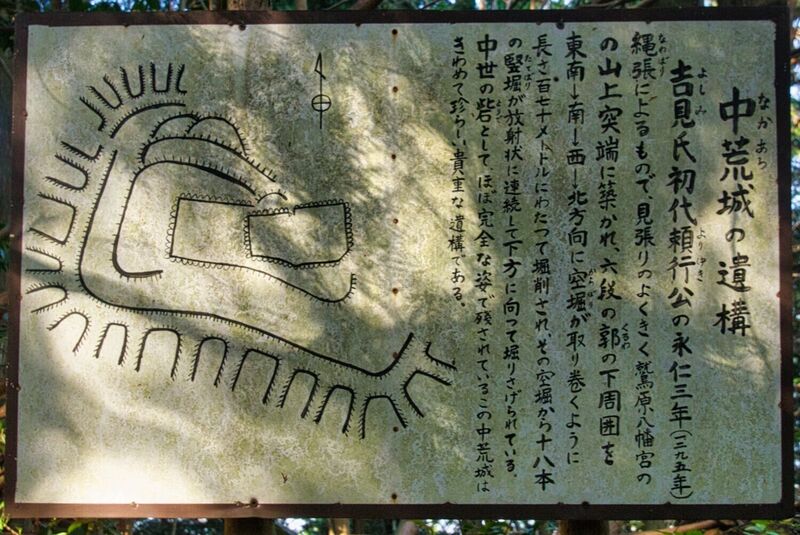 中荒城の遺構
なかあら
吉見氏初代頼行公の永仁三年(一二九五年)
よしみ
よりゆき
縄張によるもので、見張りのよくきく鷲原八幡宮の
なわばり
の山上突端に築かれ、六段の郭の下周囲を
くるわ
東南→南→西→北方向に空堀が取り巻くように
からぼり
長さ百七十メートルにわたつて堀削され、その空堀から十八本
の竪堀が放射状に連続して下方に向つて堀りさげられている。
たてぼり
中世の砦として、ほぼ完全な姿で残されているこの中荒城は
きわめて珍らしい貴重な遺構である。